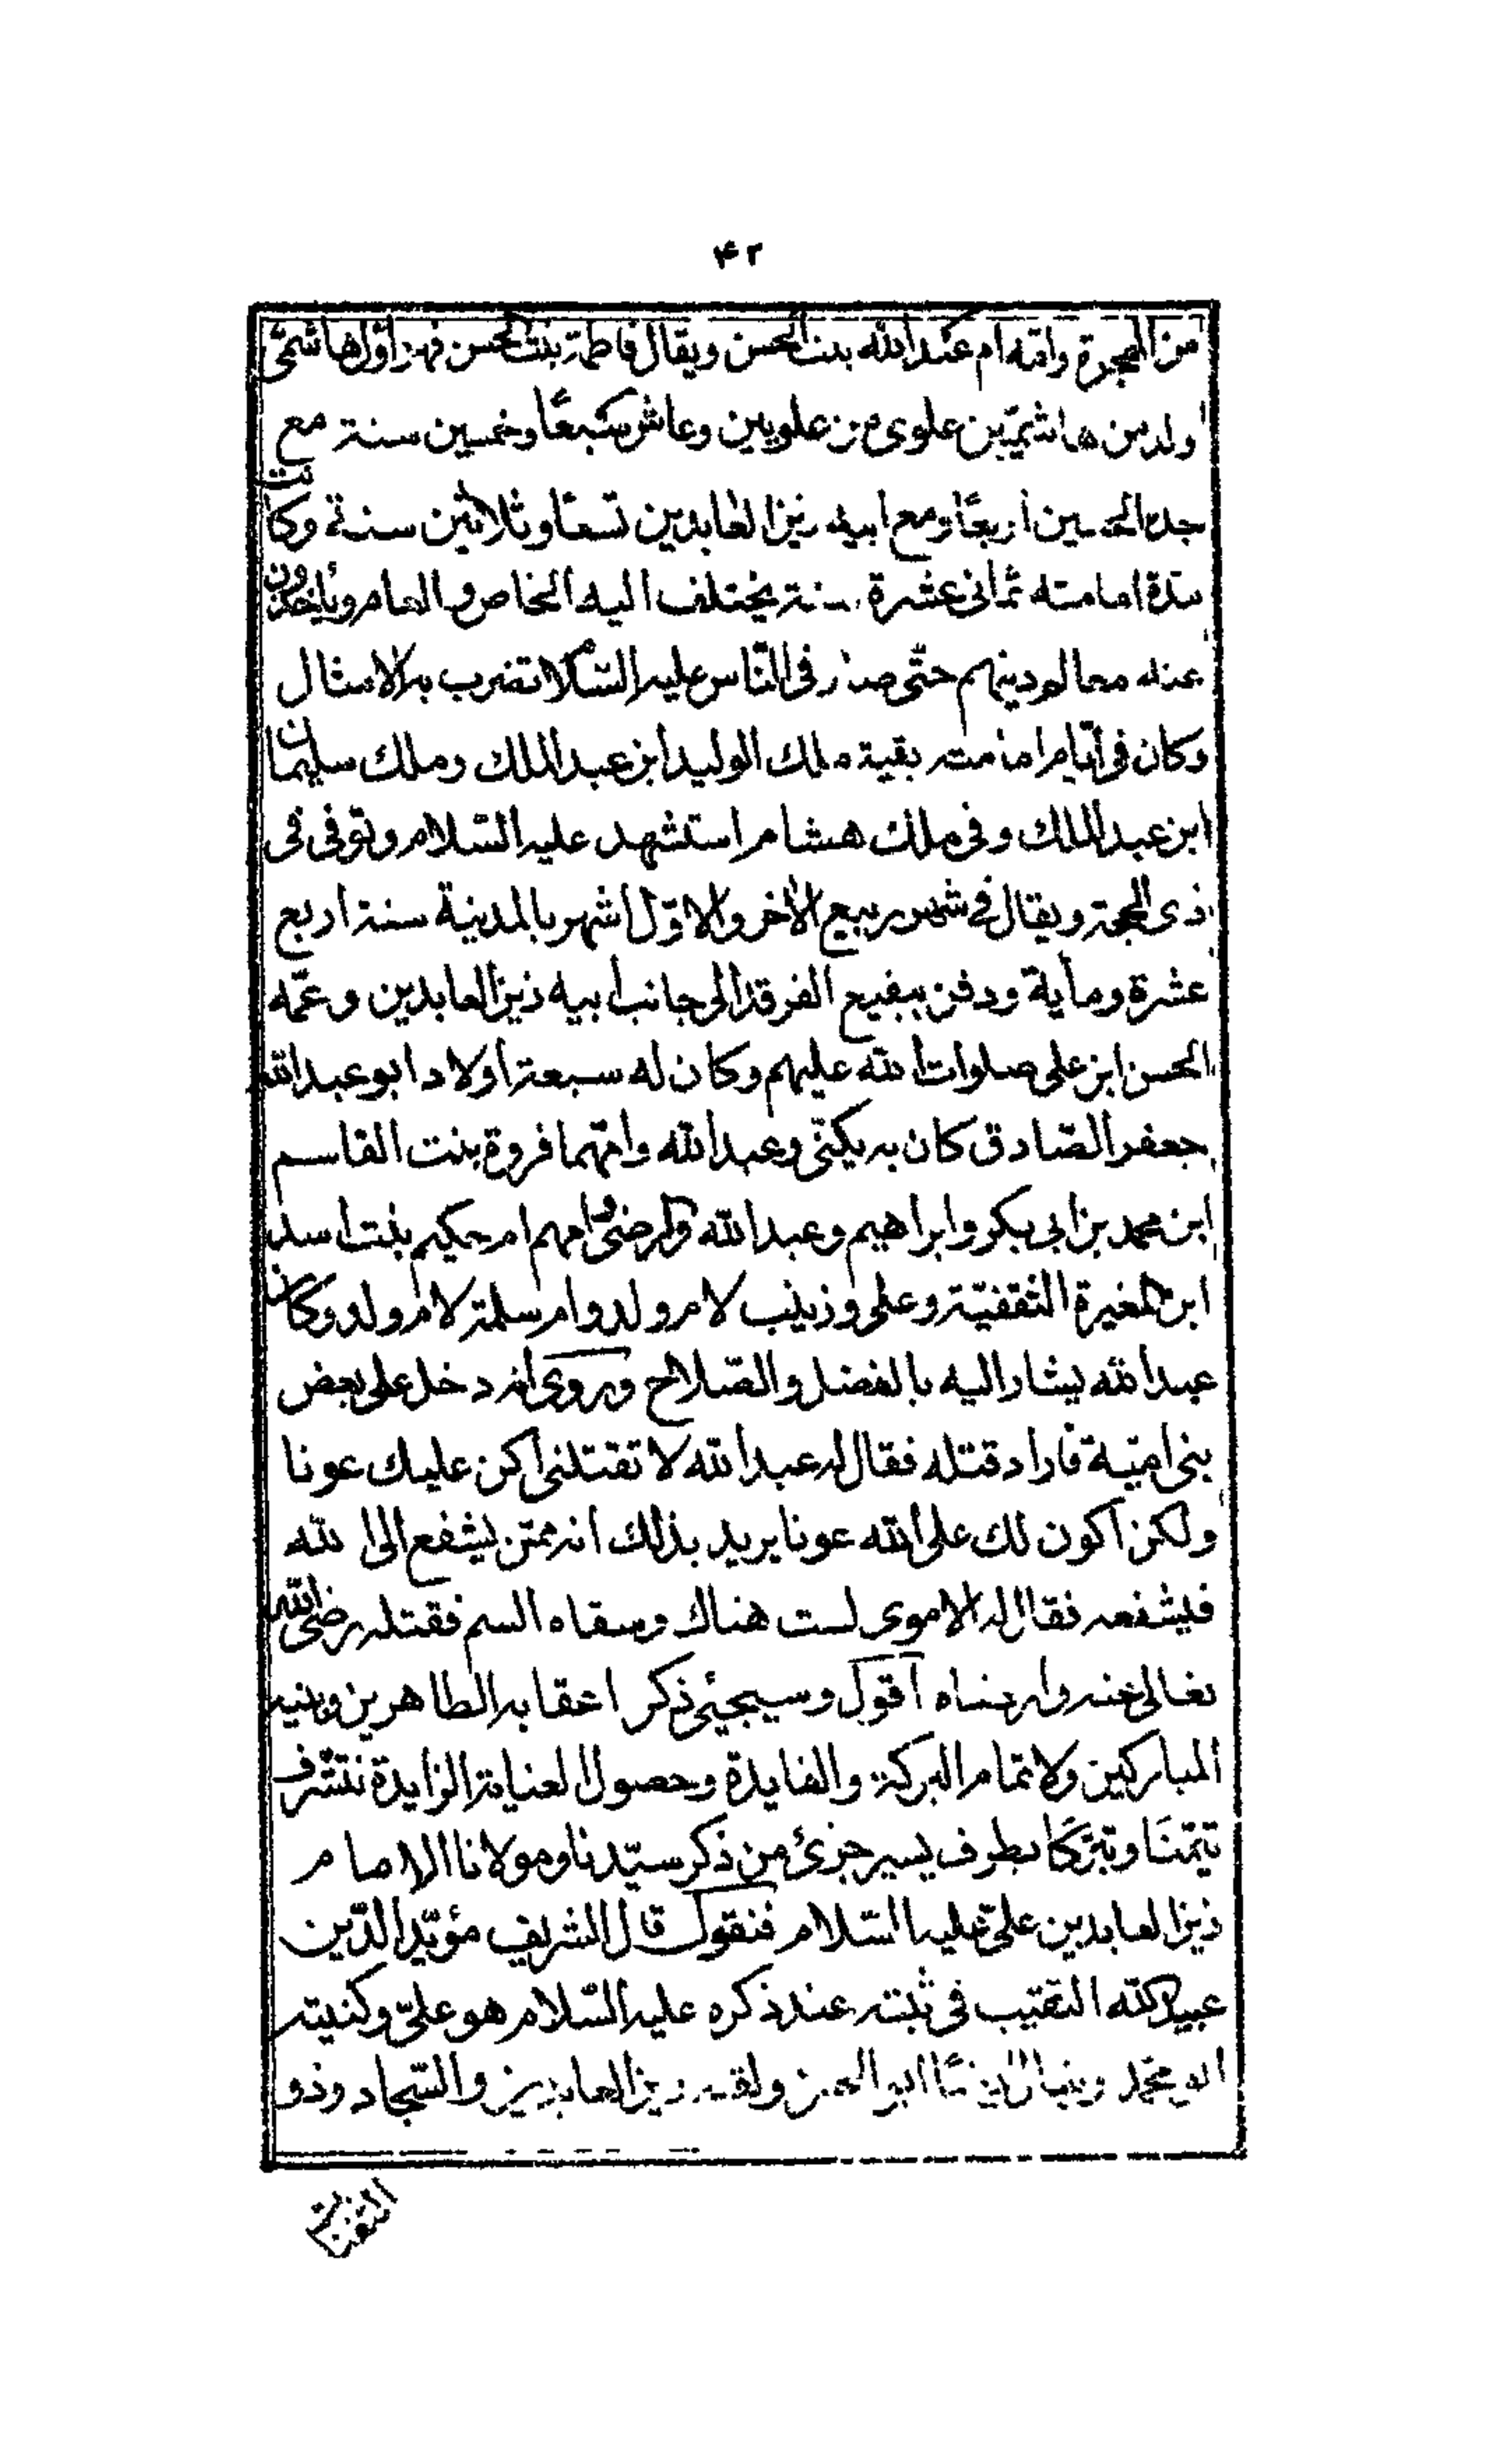 ۴۲
من الهجرة وامه ام عبدالله بنت الحسن ويقال فاطمة بنت الحسن فهو اوّل هاشمىّ
ولد من هاشميّين علوى من علويين وعاش سبعًا وخمسين سنة مع
جده الحسين اربعًا ومع ابيه زين العابدين تسعًا وثلاثين سنة وكانت
مدة امامته ثمانى عشرة سنة يختلف اليه الخاص والعام ويأخذون
عنه معالم دينهم حتّى صار فى النّاس عليه السّلام تضرب به الامثال
وكان فى ايّام امامته بقية ملك الوليد ابن عبد الملك وملك سليمان
ابن عبد الملك وفى ملك هشام استشهد عليه السّلام وتوفى فى
ذى الحجة ويقال فى شهر ربيع الاخر والاوّل اشهر بالمدينة سنة اربع
عشرة ومأية ودفن ببقيع الغرقد الى جانب ابيه زين العابدين وعمّه
الحسن ابن على صلوات الله عليهم وكان له سبعة اولاد ابو عبدالله
جعفر الصّادق كان به يكنّى وعبدالله وامّهما فروة بنت القاسم
ابن محمد بن ابى بكر وابراهيم وعبدالله امهم ام حكيم بنت اسد
ابن المغيرة الثقفيّة وعلى وزينب لام ولد وام سلمة لام ولد وكان
عبدالله يشار اليه بالفضل والصّلاح وروى انه دخل على بعض
بنى اميّة فاراد قتله فقال له عبدالله لا تقتلنى اكن عليك عونا
ولكن اكون لك على الله عونا يريد بذلك انه ممّن يشفع الى الله
فيشفعه فقال له الاموى لست هناك وسقاه السم فقتله رضى الله
تعالى عنه وارضاه اقول وسيجئ ذكر اعقابه الطاهرين وبنيه
المباركين ولاتمام البركة والفايدة وحصول العناية الزايدة نتشرّف
تيمّنًا وتبرّكًا بطرف يسير جزئ من ذكر سيّدنا ومولانا الامام
زين العابدين علىّ عليه السّلام فنقول قال الشريف مؤيّد الدّين
عبيد الله النقيب فى ثبته عند ذكره عليه السّلام هو علىّ وكنيته
ابو محمّد ويقال ايضًا ابو الحسن ولقبه زين العابدين والسّجاد وذو